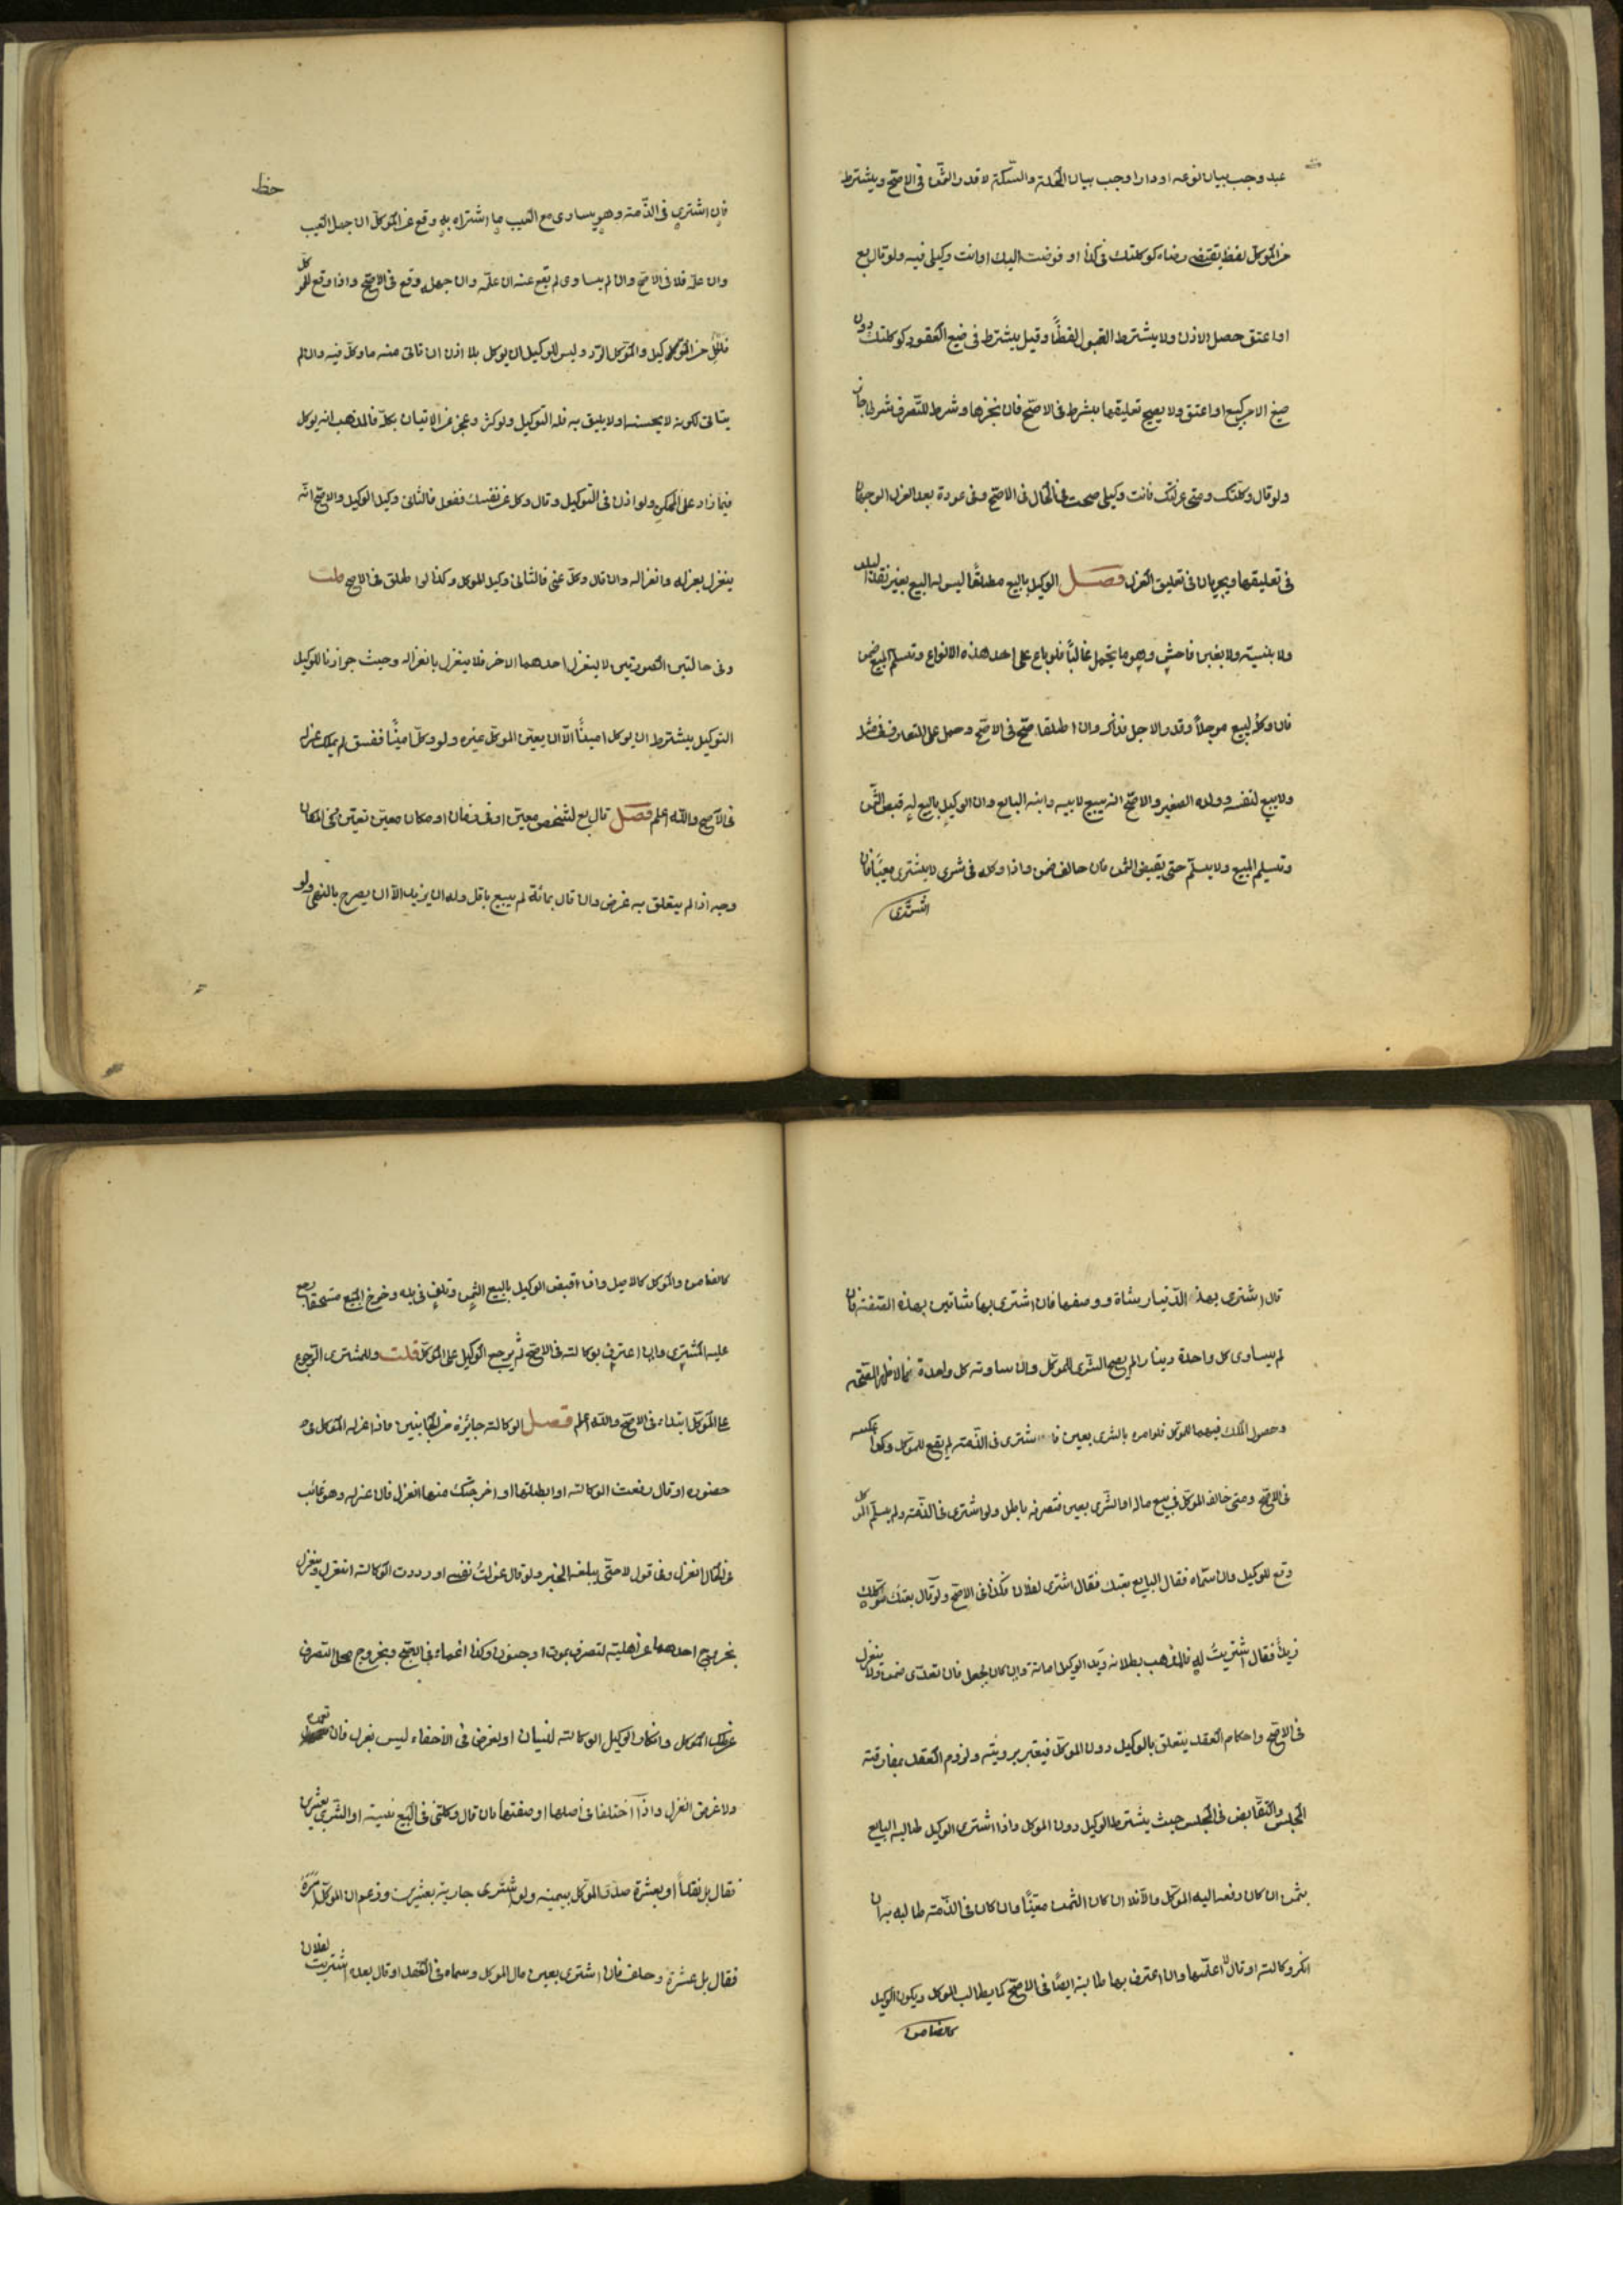 عبد وجب بيان نوعه او دار اوجب بيان المحلة والسكة لا قدر الثمن فى الاصح ويشترط
من الموكل لفظ يقتضى رضاه كوكلتك فى كذا او فوضت اليك او انت وكيلى فيه ولو قال بع
او اعتق حصل الاذن ولا يشترط القبول لفظًا وقيل يشترط فى صيغ العقود كوكلتك دون
صيغ الامر كبيع او اعتق ولا يصح تعليقها بشرط فى الاصح فان نجزها وشرط للتصرف شرطا جاز
ولو قال وكلتك ومتى عزلتك فانت وكيلى صحت فى الحال فى الاصح وفى عوده بعد العزل الوجهان
فى تعليقها ويجريان فى تعليق العزل فصل الوكيل بالبيع مطلقًا ليس له البيع بغير نقد البلد
ولا بنسيئة ولا بغبن فاحش وهو ما يحتمل غالبًا فلو باع على احد هذه الانواع وتسلم المبيع ضمن
فان وكل لبيع موجلاً وقدر الاجل فذاك وان اطلق صح فى الاصح وحمل على المتعارف فى مثله
ولا يبيع لنفسه وولده الصغير والاصح انه يبيع لابيه وابنه البالغ وان الوكيل بالبيع له قبض الثمن
وتسليم المبيع ولا يسلم حتى يقبض الثمن فان خالف ضمن واذا وكله فى شرى لا يشترى معيبًا فان
اشترى
حظ
فان اشترى فى الذمة وهو يساوى مع العيب ما اشتراه به وقع عن الموكل ان جهل العيب
وان علمه فلا فى الاصح وان لم يساوى لم يقع عنه ان علمه وان جهله وقع فى الاصح واذا وقع للموكل
فلكل من الوكيل والموكل الرد وليس للوكيل ان يوكل بلا اذن ان تاتى منه ما وكل فيه وان لم
يتاتى لكونه لا يحسنه او لا يليق به فله التوكيل ولو كثر وعجز عن الاتيان بكله فالمذهب انه يوكل
فيما زاد على الممكن ولو اذن فى التوكيل وقال وكل عن نفسك ففعل فالثانى وكيل الوكيل والاصح انه
ينعزل بعزله وانعزاله وان قال وكل عنى فالثانى وكيل الموكل وكذا لو اطلق فى الاصح قلت
وفى حالتين الصورتين لا ينعزل احدهما الاخر فلا ينعزل بانعزاله وحيث جوازنا للوكيل
التوكيل يشترط ان يوكل امينًا الا ان يعين الموكل غيره ولو وكل امينًا ففسق لم يملك عزله
فى الاصح والله اعلم فصل قال بع لشخص معين او فى زمان او مكان معين تعين وفى المكان
وجه اذا لم يتعلق به غرض وان قال بمائة لم يبيع باقل وله ان يزيد الا ان يصرح بالنهى ولو
قال اشترى بهذا الدينار بشاة ووصفها فان اشترى بها شاتين بهذه الصفة فان
لم يساوى كل واحدة دينارا لم يصح الشرى للموكل وان ساوته كل واحدة فالاظهر الصحة
وحصول الملك فيهما للموكل فلو امره بالشرى بعين فاشترى فى الذمة لم يقع للموكل وكذا عكسه
فى الاصح ومتى خالف الموكل فى بيع ماله او الشرى بعين فتصرفه باطل ولو اشترى فى الذمة ولم يسم الموكل
وقع للوكيل وان سماه فقال البايع بعتك فقال اشترى لفلان فكذا فى الاصح ولو قال بعتك موكلك
زيدًا فقال اشتريتُ له فالمذهب بطلانه ويد الوكيل امانة وان كان بجعل فان تعدى ضمن ولا ينعزل
فى الاصح واحكام العقد يتعلق بالوكيل دون الموكل فيعتبر برويته ولزوم العقد بمفارقته
المجلس والتقابض فى المجلس حيث يشترط الوكيل دون الموكل واذا اشترى الوكيل طالبه البايع
بثمن ان كان دفعه اليه الموكل والا فلا ان كان الثمن معينًا وان كان فى الذمة طالبه به ان
انكر وكالته او قال لا اعلمها وان اعترف بها طالبه ايضًا فى الاصح كما يطالب الموكل ويكون الوكيل
كالضامن
كالضامن والموكل كالاصيل واذا قبض الوكيل بالبيع الثمن وتلف فى يده وخرج المبيع مستحقا رجع
عليه المشترى وان اعترف بوكالته فى الاصح ثم يرجع الوكيل على الموكل قلت وللمشترى الرجوع
على الموكل ابتداء فى الاصح والله اعلم فصل الوكالة جايزة من الجانبين فاذا عزله الموكل فى
حضوره او قال رفعت الوكالته او ابطلتها او اخرجتك منها انعزل فان عزله وهو غائب
فى الحال انعزل وفى قول لا حتى يبلغه الخبر ولو قال عزلتُ نفسى او رددت الوكالته انعزل وينعزل
بخروج احدهما عن اهلية لتصرف بموت او جنون وكذا اغماء فى الاصح وبخروج محل التصرف
عن ملك الموكل وانكار الوكيل الوكالته لنسيان او لغرض فى الاخفاء ليس بعزل فان تعمد
ولا غرض انعزل واذا اختلفا فى اصلها او صفتها بان قال وكلتنى فى البيع نسيئة او الشرى بعشرين
فقال بل نقدًا او بعشرة صدق الموكل بيمينه ولو اشترى جارية بعشرين وزعم ان الموكل امره
فقال بل عشرة وحلف فان اشترى بعين مال الموكل وسماه فى العقد او قال بعده اشتريت لفلان